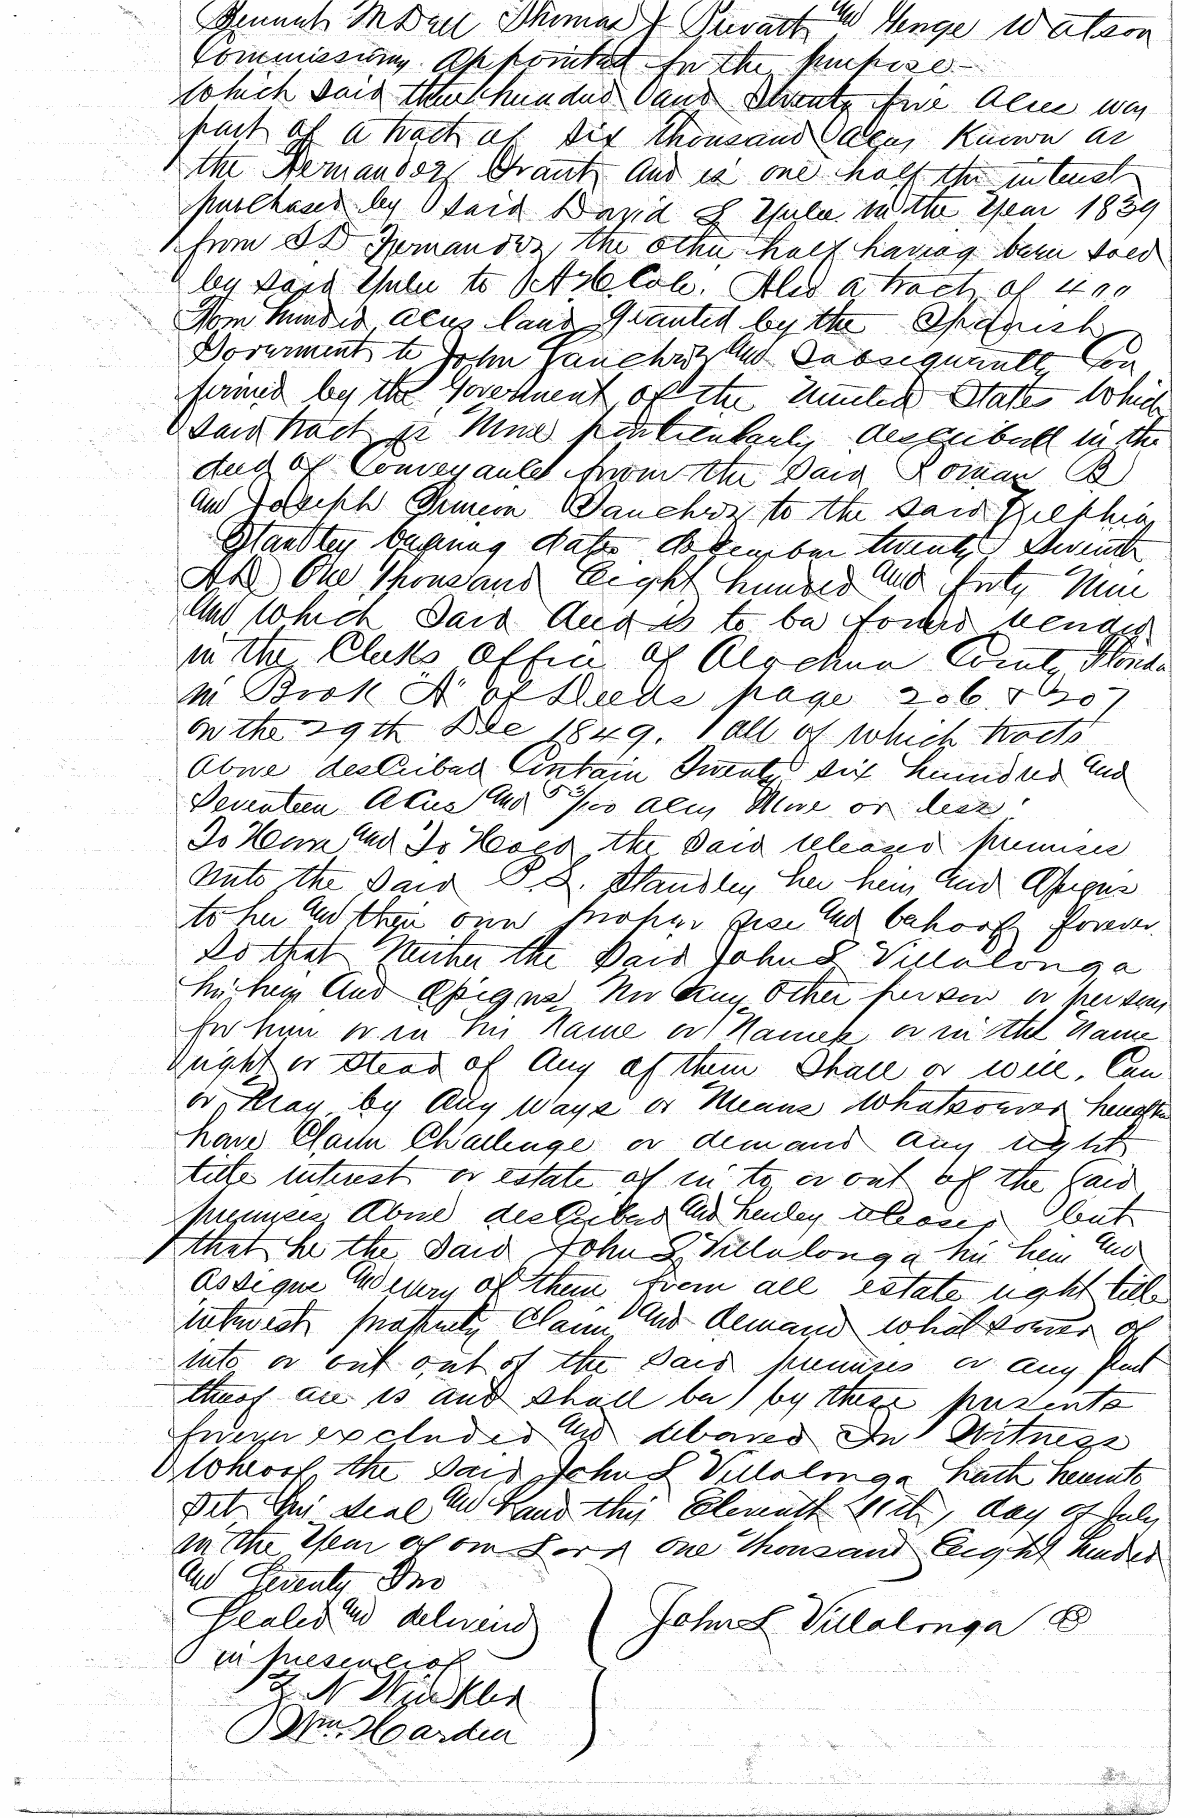 Thomas J Prevatt and George Watson
Commissioners appointed for the purpose
which said three hundred and Seventy five acres was
part of a tract of Six thousand acres Known as
the Hernandez Grant and is one half the interest
purchased by said David L Yulee in the Year 1839
from Hernandez the other half having been sold
by said Yulee to A H Cole. Also a tract of 400
Four hundred acres land granted by the Spanish
Goverment to John Sanchez and Subsequently Con
firmed by the Government of the United States Which
said tract is More particularly described in the
deed of Conveyance from the said Roman B
and Joseph Simeon Sanchez to the said
Standley bearing date December twenty Seventh
AD One Thousand Eight hundred and forty Nine
and which said deed is to be found
in the Clerks office of Alachua County Florida
in Book "A" of Deeds page 206 & 207
on the 29th Dec 1849. all of which tracts
above described Contain Twenty six hundred and
Seventeen Acres and 53/100 acres More or less.
To Have and To Hold the said released premises
unto the said P. L. Standley her heirs and Assigns
to her and their own proper use and behoof forever.
So that Neither the said John L Villalonga
his heirs and Assigns Nor any other person or persons
for him or in his Name or Names or in the Name
right or stead of any of them Shall or will, Can
or May by any ways or Means whatsoever hereafter
have Claim Challenge or demand any right
title interest or estate of in to or out of the said
premises above described and hereby released but
that he the said John L Villalonga his heirs and
assigns and every of them from all estate right title
interest property Claim and demand whatsoever of
into or out out of the said premises or any part
thereof are is and shall be by these presents
forever excluded and debared In Witness
Whereof the said John L Villalonga hath hereunto
set his seal and hand this Eleventh 11th, day of July
in the Year of our Lord one thousand Eight hundred
and Seventy Two
Sealed and delivered
in presence of
John L Villalonga
Z N Winkler
Wm. Harden